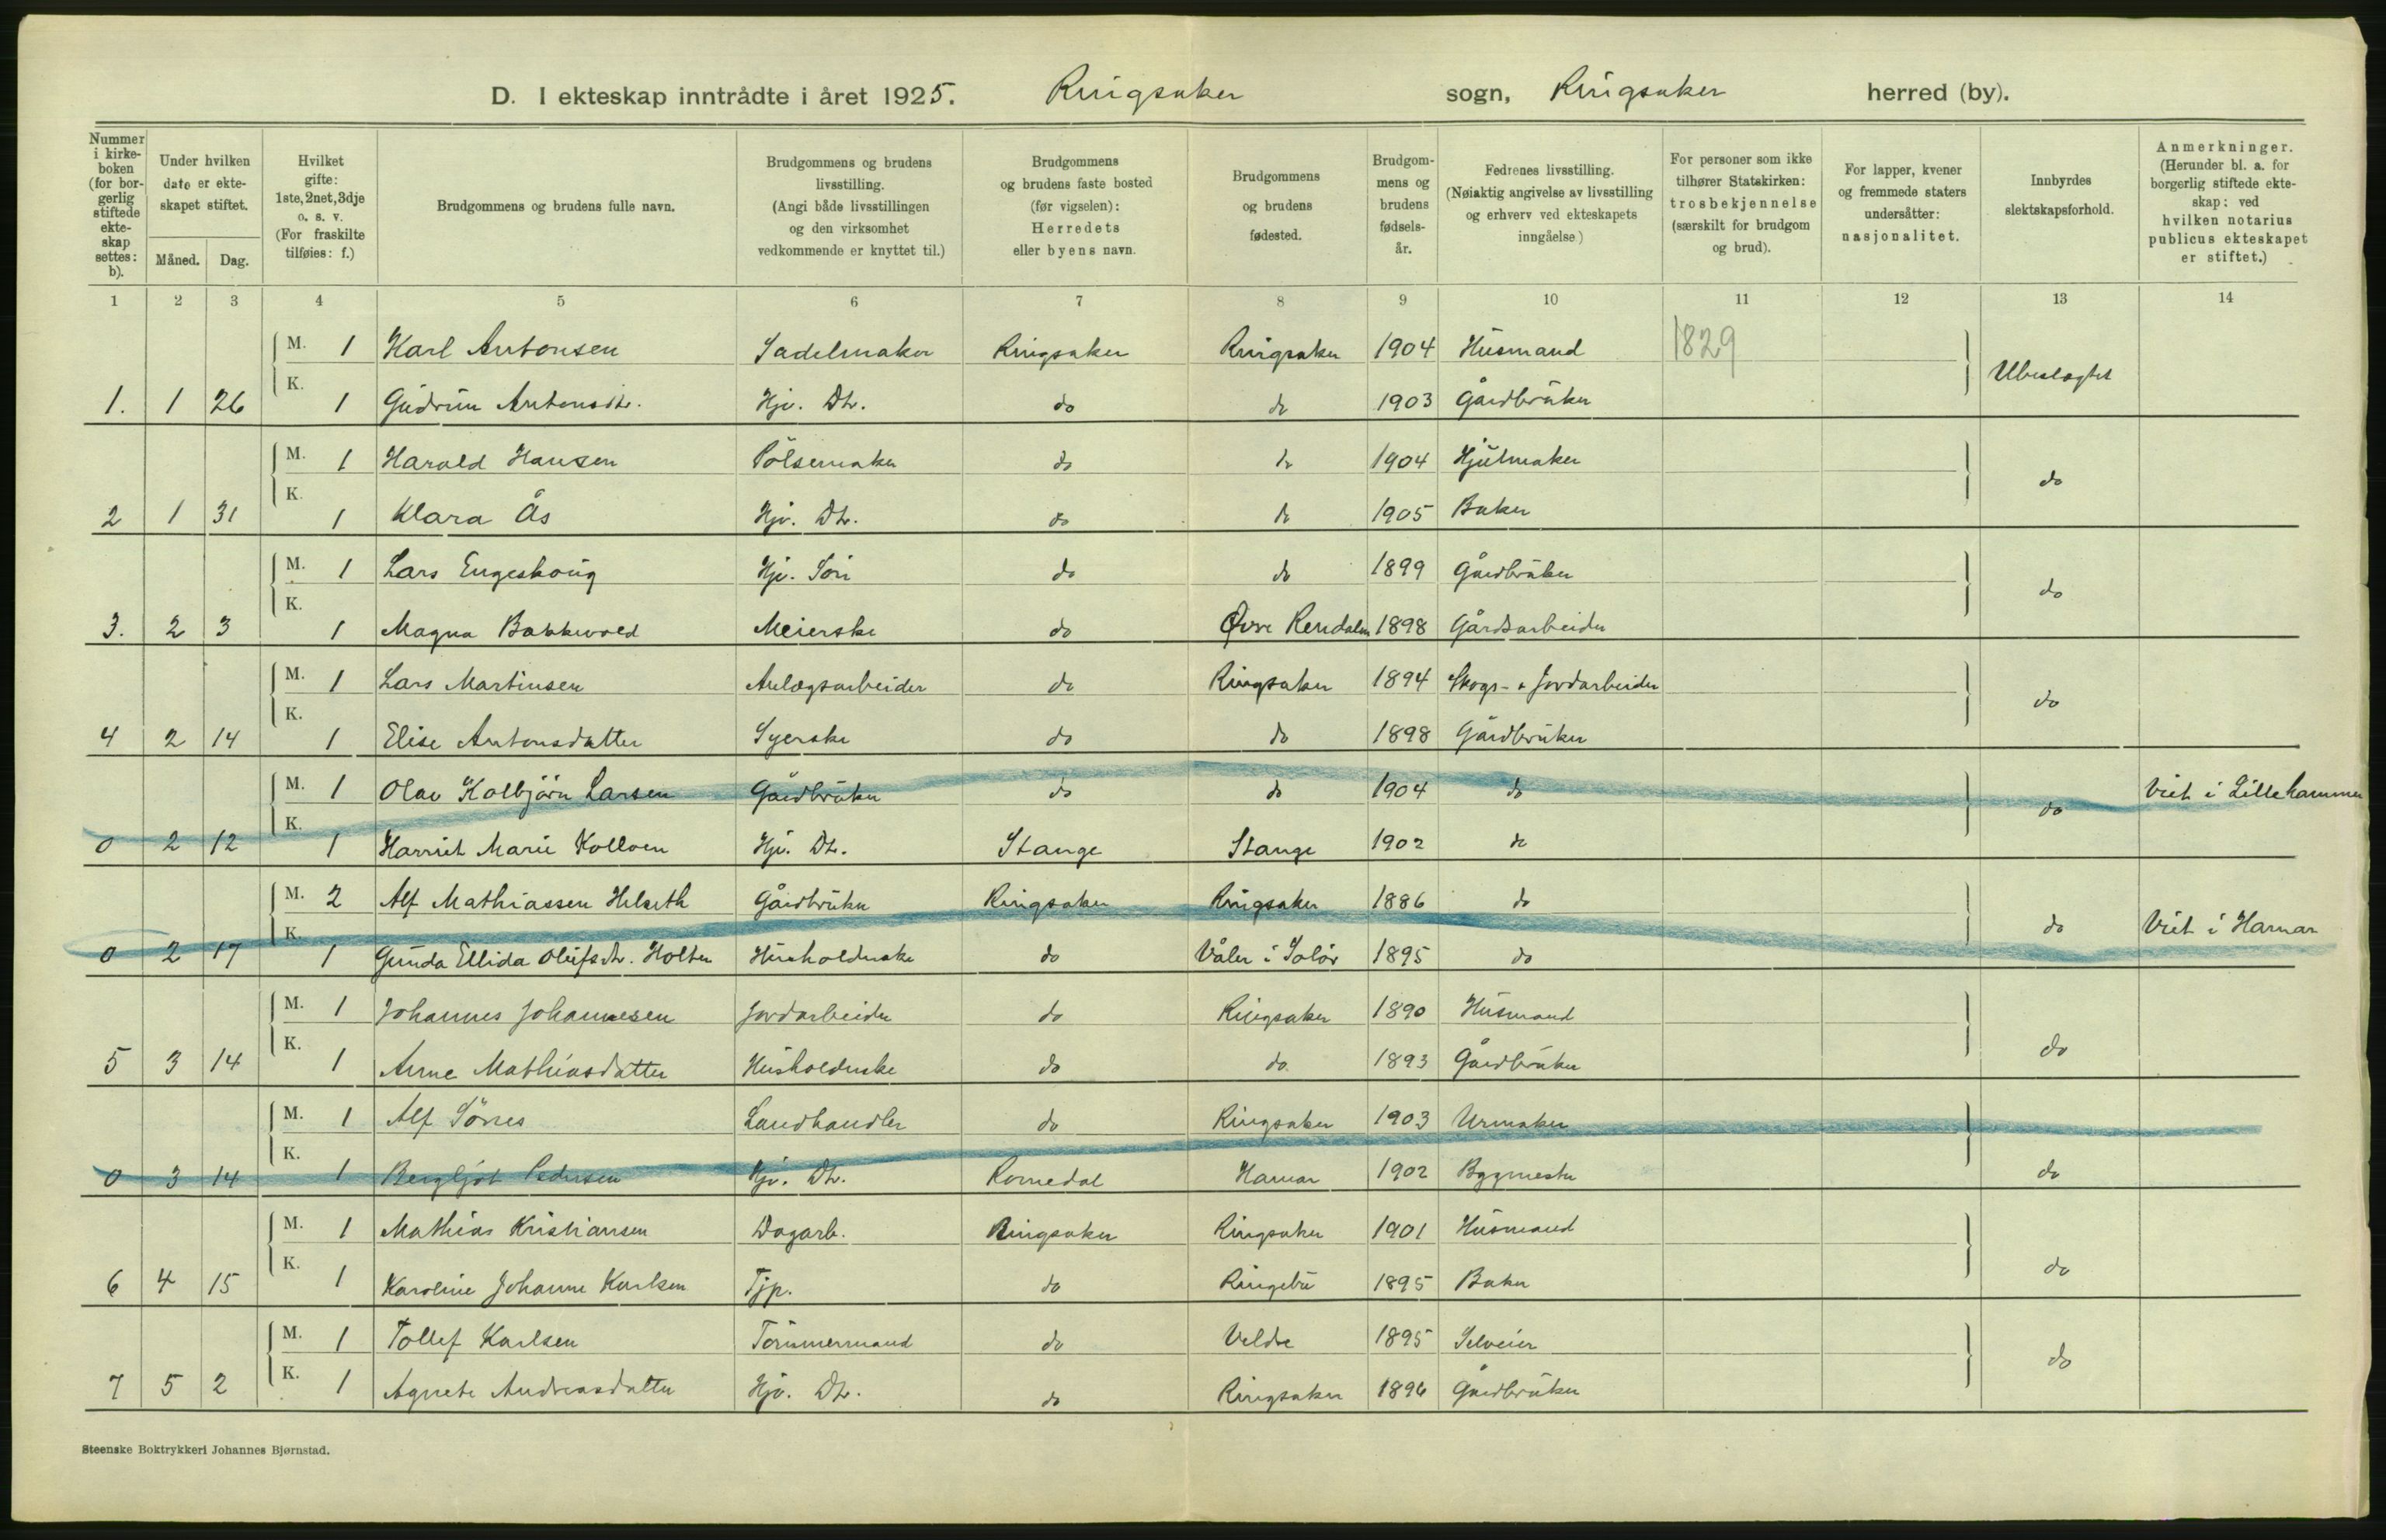 D. I ekteskap inntrådte i året 1925. Ringsaker sogn, Ringsaker herred (by).
Nummer i kirke-boken (for bor-gerlig stiftede ekte-skap settes: b).
Under hvilken dato er ekte-skapet stiftet.
Måned. Dag.
Hvilket gifte: 1ste, 2net, 3dje o. s. v. (For fraskilte tilføies: f.)
Brudgommens og brudens fulle navn.
Brudgommens og brudens livsstilling. (Angi både livsstillingen og den virksomhet vedkommende er knyttet til.)
Brudgommens og brudens faste bosted (før vigselen): Herredets eller byens navn.
Brudgommens og brudens fødested.
Brudgom-mens og brudens fødsels-år.
Fedrenes livsstilling. (Nøiaktig angivelse av livsstilling og erhverv ved ekteskapets inngåelse)
For personer som ikke tilhører Statskirken: trosbekjennelse (særskilt for brudgom og brud).
For lapper, kvener og fremmede staters undersåtter: nasjonalitet.
Innbyrdes slektskapsforhold.
Anmerkninger. (Herunder bl. a. for borgerlig stiftede ekte-skap: ved hvilken notarius publicus ekteskapet er stiftet.)
1 2 3 4 5 6 7 8 9 10 11 12 13 14
M. 1 Karl Antonsen Sadelmaker Ringsaker Ringsaker 1904 Husmand 1829
Ubeslægtet
1. 1 26 K. 1 Gudrun Antonsdtr. Hjv. Dtr. do do 1903 Gårdbruker
M. 1 Harald Hansen Pölsemaker do do 1904 Hjulmaker
do
2 1 31 K. 1 Klara Ås Hjv. Dtr. do do 1905 Baker
M. 1 Lars Engeskoug Hjv. Sön do do 1899 Gårdbruker
do
3. 2 3 K. 1 Magna Bakkevold Meierske do Øvre Rendalen 1898 Gårdsarbeider
M. 1 Lars Martinsen Anlægsarbeider do Ringsaker 1894 Skogs- & Jordarbeider
do
4 2 14 K. 1 Elise Antonsdatter Syerske do do 1898 Gårdbruker
M. 1 Olav Kolbjörn Larsen Gårdbruker do do 1904 do do Viet i Lillehammer
0 2 12 K. 1 Harriet Marie Kolloen Hjv. Dtr. Stange Stange 1902 do
M. 2 Alf Mathiassen Helseth Gårdbruker Ringsaker Ringsaker 1886 do
do Viet i Hamar
0 2 17 K. 1 Gunda Ellida Olufsdtr. Holten Husholderske do Våler i Solör 1895 do
M. 1 Johannes Johannesen Jordarbeider do Ringsaker 1890 Husmand
do
5 3 14 K. 1 Anne Mathiasdatter Husholderske do do. 1893 Gårdbruker
M. 1 Alf Landhandler do Ringsaker 1903 Urmaker
0 3 14 K. 1 Bergljot Pedersen Hjv. Dtr. Romedal Hamar 1902 Byggmester do
M. 1 Mathias Kristiansen Dagarb. Ringsaker Ringsaker 1901 Husmand
do
6 4 15 K. 1 Karoline Johanne Karlsen Tjp. do Ringebu 1895 Baker
M. 1 Tollef Karlsen Tömmermand do Veldre 1895 Selveier
do
7 5 2 K. 1 Agnete Andreasdatter Hjv. Dtr. do Ringsaker 1896 Gårdbruker
Steenske Boktrykkeri Johannes Bjørnstad.